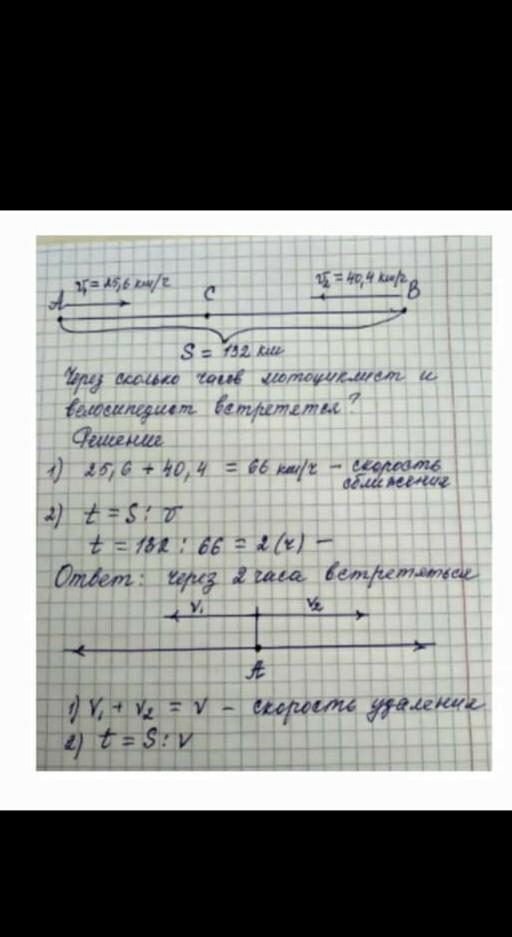 v₁ = 25,6 км/ч
v₂ = 40,4 км/ч
A C B
S = 132 км
Через сколько часов мотоциклист и
велосипедист встретятся?
Решение
1) 25,6 + 40,4 = 66 км/ч – скорость
сближения
2) t = S : v
t = 132 : 66 = 2 (ч) –
Ответ: через 2 часа встретяться
v₁ v₂
A
1) v₁ + v₂ = v – скорость удаления
2) t = S : v